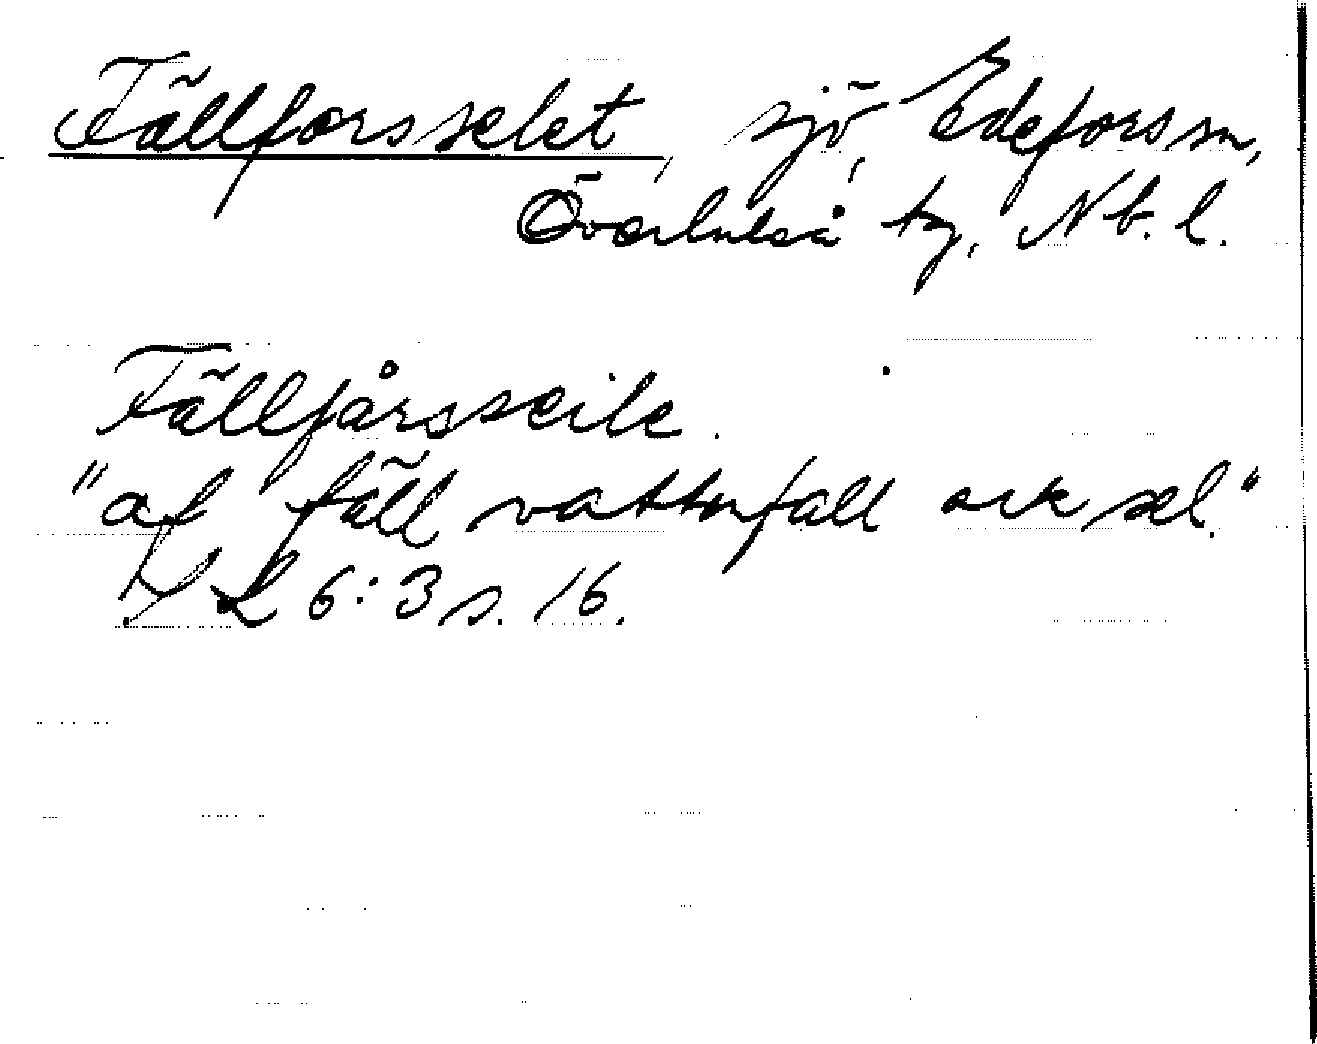 Fällforsselet, sjö, Edefors sn,
Överluleå tg, Nb. l.
Fällfårsseile.
"af fäll vattenfall ock sel."
SL 6:3 s. 16.